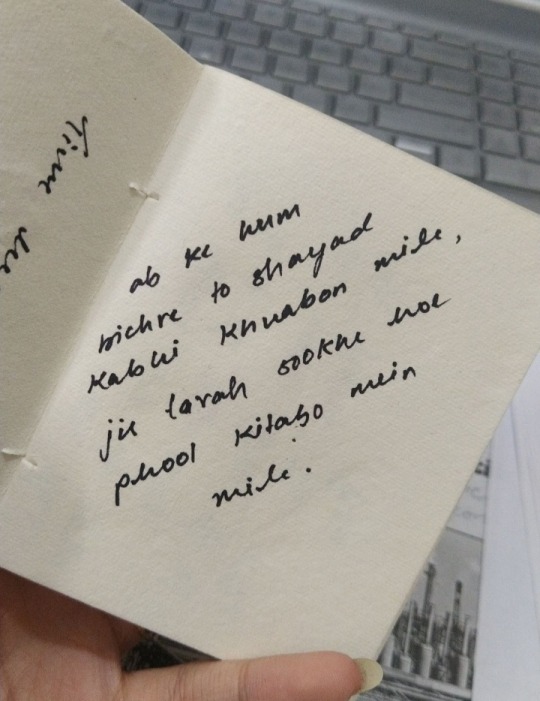 Time
ab ke hum
bichre to shayad
kabhi khuabon mile,
jis tarah sookhe hoe
phool kitabo mein
mile.